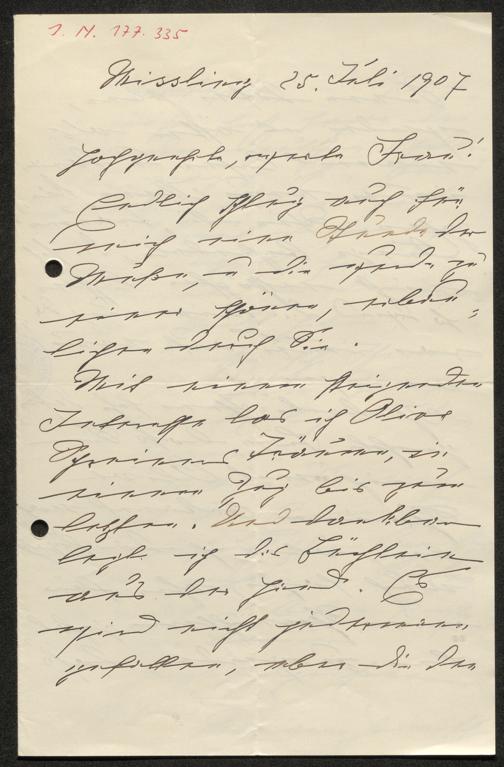 I. N. 177.335
Missling 25. Juli 1907
Hochgeehrte, werte Frau!
Endlich schlug auch für
mich eine Stunde der
Muße, u die wurde zu
einer schönen, erbau-
lichen durch Sie.
Mit einem steigenden
Interesse las ich Olive
Schreiners Träume, in
einem Zug bis zum
letzten. Und dankbar
legte ich das Büchlein
aus der Hand. Es
wird nicht jedermann
gefallen, aber die den